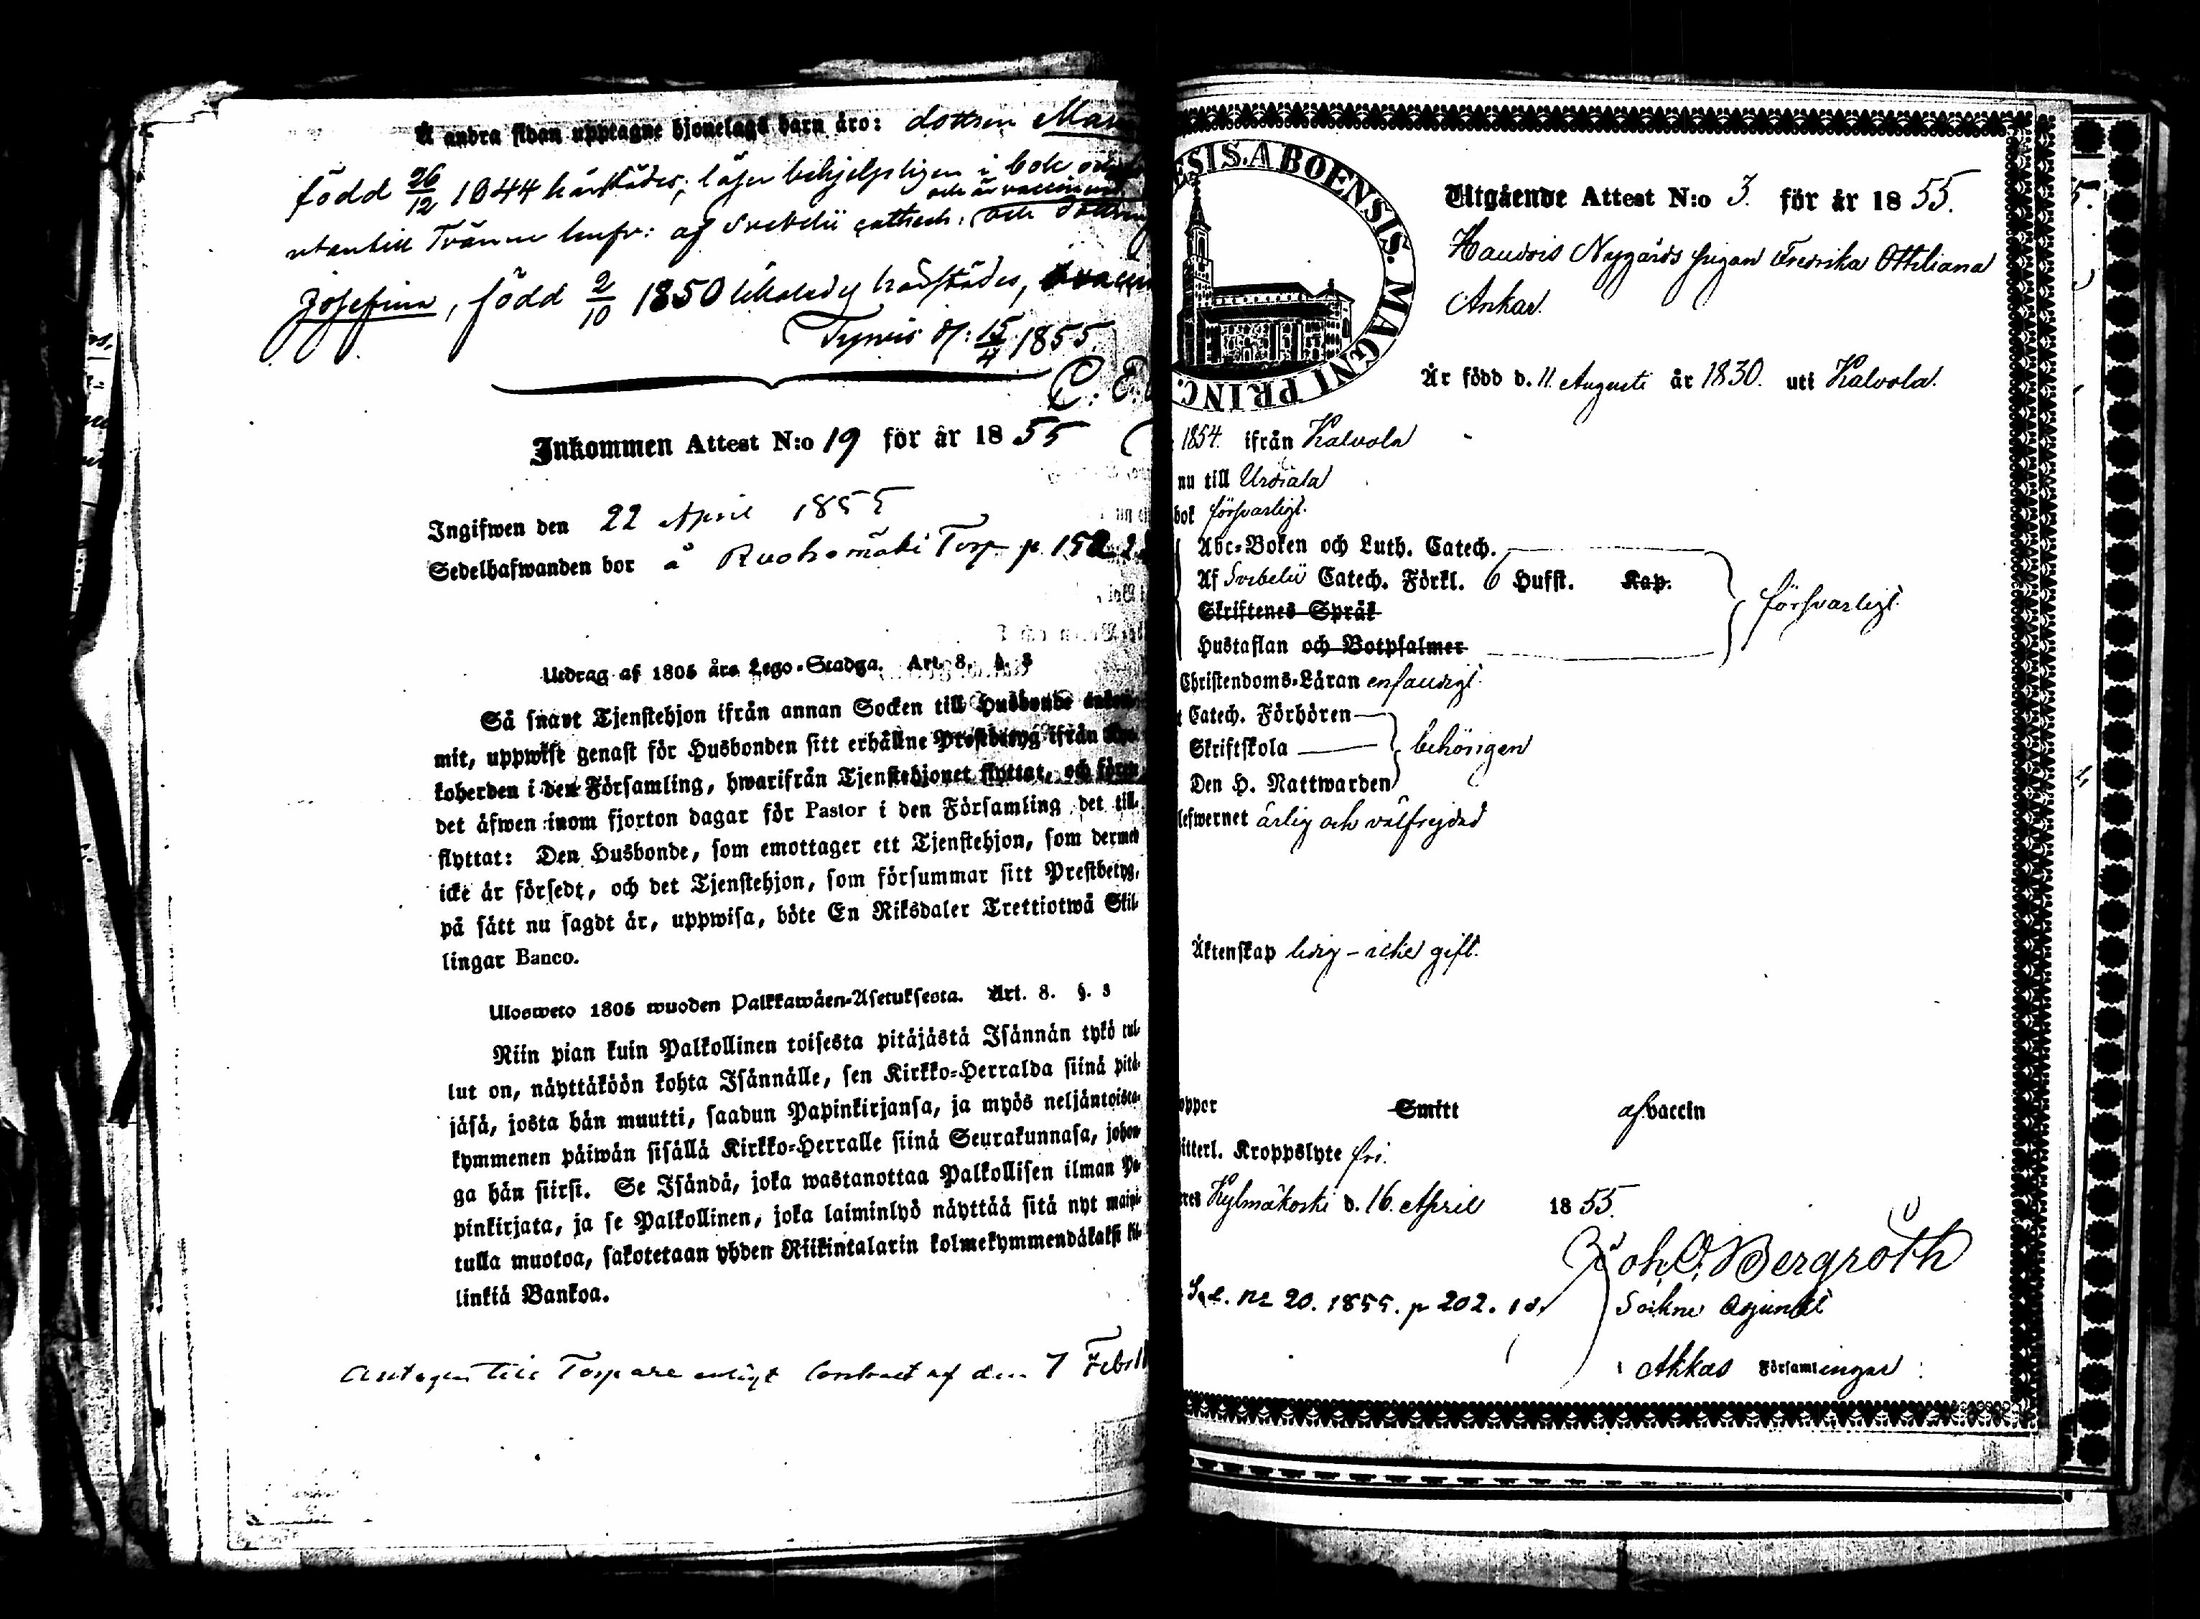 Å andra sidan upptagne hjonelags barn äro: dottren
född 26/12 1844 härstädes; läser behjelpligen i bok
och är vaccinerad,
utantill Tränne hufv: af Svebelii cattech: och dottren
Josefina, född 2/10 1850 likaledes härstädes,
Tyrvis d: 15/4 1855.
C. E.
Inkommen Attest N:o 19 för år 1855
Ingifwen den 22 April 1855
Sedelhafwanden bor å Ruohomäki Torp p
Utdrag af 1805 års Lego-Stadga. Art. 8. §. 3
Så snart Tjenstehjon ifrån annan Socken till Husbonde
mit, uppwise genast för Husbonden sitt erhållne Prestbetyg ifrån
koherden i den Församling, hwarifrån Tjenstehjonet flyttat, och
det äfwen inom fjorton dagar för Pastor i den Församling det till-
flyttat: Den Husbonde, som emottager ett Tjenstehjon, som dermed
icke är försedt, och det Tjenstehjon, som försummar sitt Prestbetyg,
på sätt nu sagdt är, uppwisa, böte En Riksdaler Trettiotwå Skil-
lingar Banco.
Ulosweto 1805 wuoden Palkkawäen-Asetuksesta. Art. 8. §. 3
Niin pian kuin Palkollinen toisesta pitäjästä Isännän tykö tul-
lut on, näyttäköön kohta Isännälle, sen Kirkko-Herralda siinä pitä-
jäsä, josta hän muutti, saadun Papinkirjansa, ja myös neljäntoista-
kymmenen päiwän sisällä Kirkko-Herralle siinä Seurakunnasa, johon-
ga hän siirsi. Se Isändä, joka wastanottaa Palkollisen ilman Pa-
pinkirjata, ja se Palkollinen, joka laiminlyö näyttää sitä nyt maini-
tulla muotoa, sakotetaan yhden Riikintalarin kolmekymmendäkaksi kil-
linkiä Bankoa.
Antagen till Torpare enligt Contract af den 7 Febr
ESIS. ABOENSIS. MAGNI PRINC.
Utgående Attest N:o 3. för år 1855.
Haudois Nygårds pigan Fredrika Ottiliana
Ankar.
Är född d. 11 Augusti år 1830. uti Kalvola.
1854. ifrån Kalvola
nu till Urdiala
bok försvarligt.
Abc-Boken och Luth. Catech.
Af Svebelii Catech. Förkl. 6 Hufst. Kap.
Skriftenes Språk
Hustaflan och Botpsalmer
försvarligt.
Christendoms-Läran enfaldigt.
Catech. Förhören
Skriftskola
Den H. Nattwarden
behörigen
lefwernet ärlig och välfrejdad
Äktenskap ledig - icke gift.
oppor Smitt af vaccin
itterl. Kroppslyte fri.
Kylmäkoski d. 16. April 1855.
Joh. O. Bergroth
Sockne Adjunkt
No 20. 1855. p 202.
i Akkas Församlingar